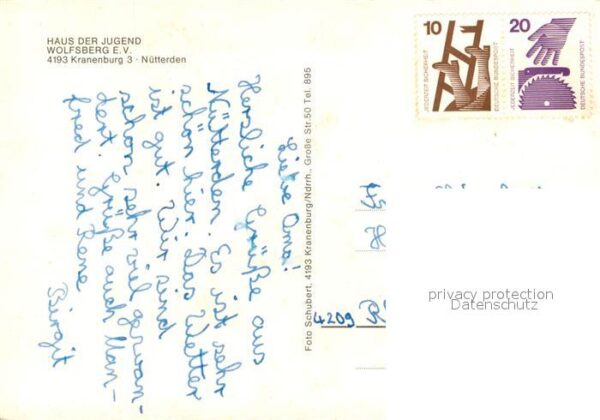 HAUS DER JUGEND
WOLFSBERG E.V.
4193 Kranenburg 3 · Nütterden
Liebe Oma!
Herzliche Grüße aus
Nütterden. Es ist sehr
schön hier. Das Wetter
ist gut. Wir sind
schon sehr viel gewan-
dert. Grüße auch Man-
fred und Rene
Birgit
Foto Schubert, 4193 Kranenburg/Ndrrh., Große Str. 50 Tel. 895
10
JEDERZEIT SICHERHEIT
DEUTSCHE BUNDESPOST
20
JEDERZEIT SICHERHEIT
DEUTSCHE BUNDESPOST
4209
privacy protection
Datenschutz